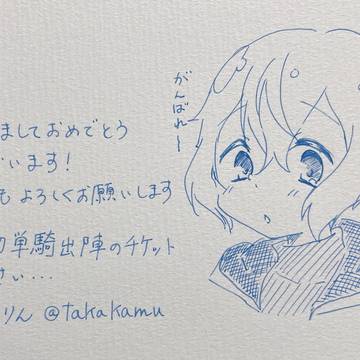 ましておめでとう
います!
も よろしくお願いします
単騎出陣のチケット
さい・・・
りん @takakamu
がんばれー